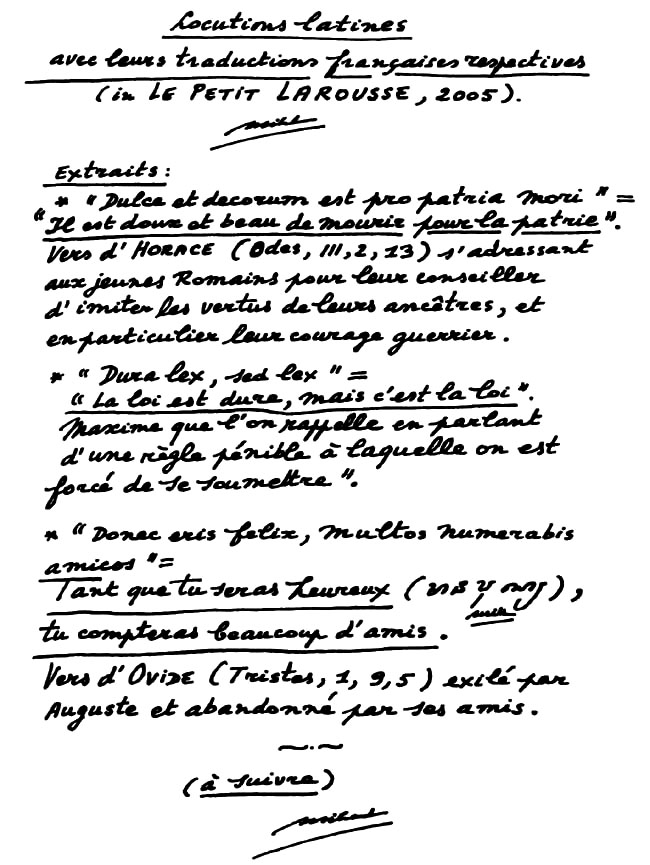 Locutions latines
avec leurs traductions françaises respectives
(in LE PETIT LAROUSSE, 2005).
Extraits :
* "Dulce et decorum est pro patria mori" =
"Il est doux et beau de mourir pour la patrie".
Vers d'HORACE (Odes, III, 2, 13) s'adressant
aux jeunes Romains pour leur conseiller
d'imiter les vertus de leurs ancêtres, et
en particulier leur courage guerrier.
* "Dura lex, sed lex" =
"La loi est dure, mais c'est la loi".
Maxime que l'on rappelle en parlant
d'une règle pénible à laquelle on est
forcé de se soumettre".
* "Donec eris felix, multos numerabis
amicos" =
Tant que tu seras heureux (
),
tu compteras beaucoup d'amis.
Vers d'OVIDE (Tristes, 1, 9, 5) exilé par
Auguste et abandonné par ses amis.
(à suivre)